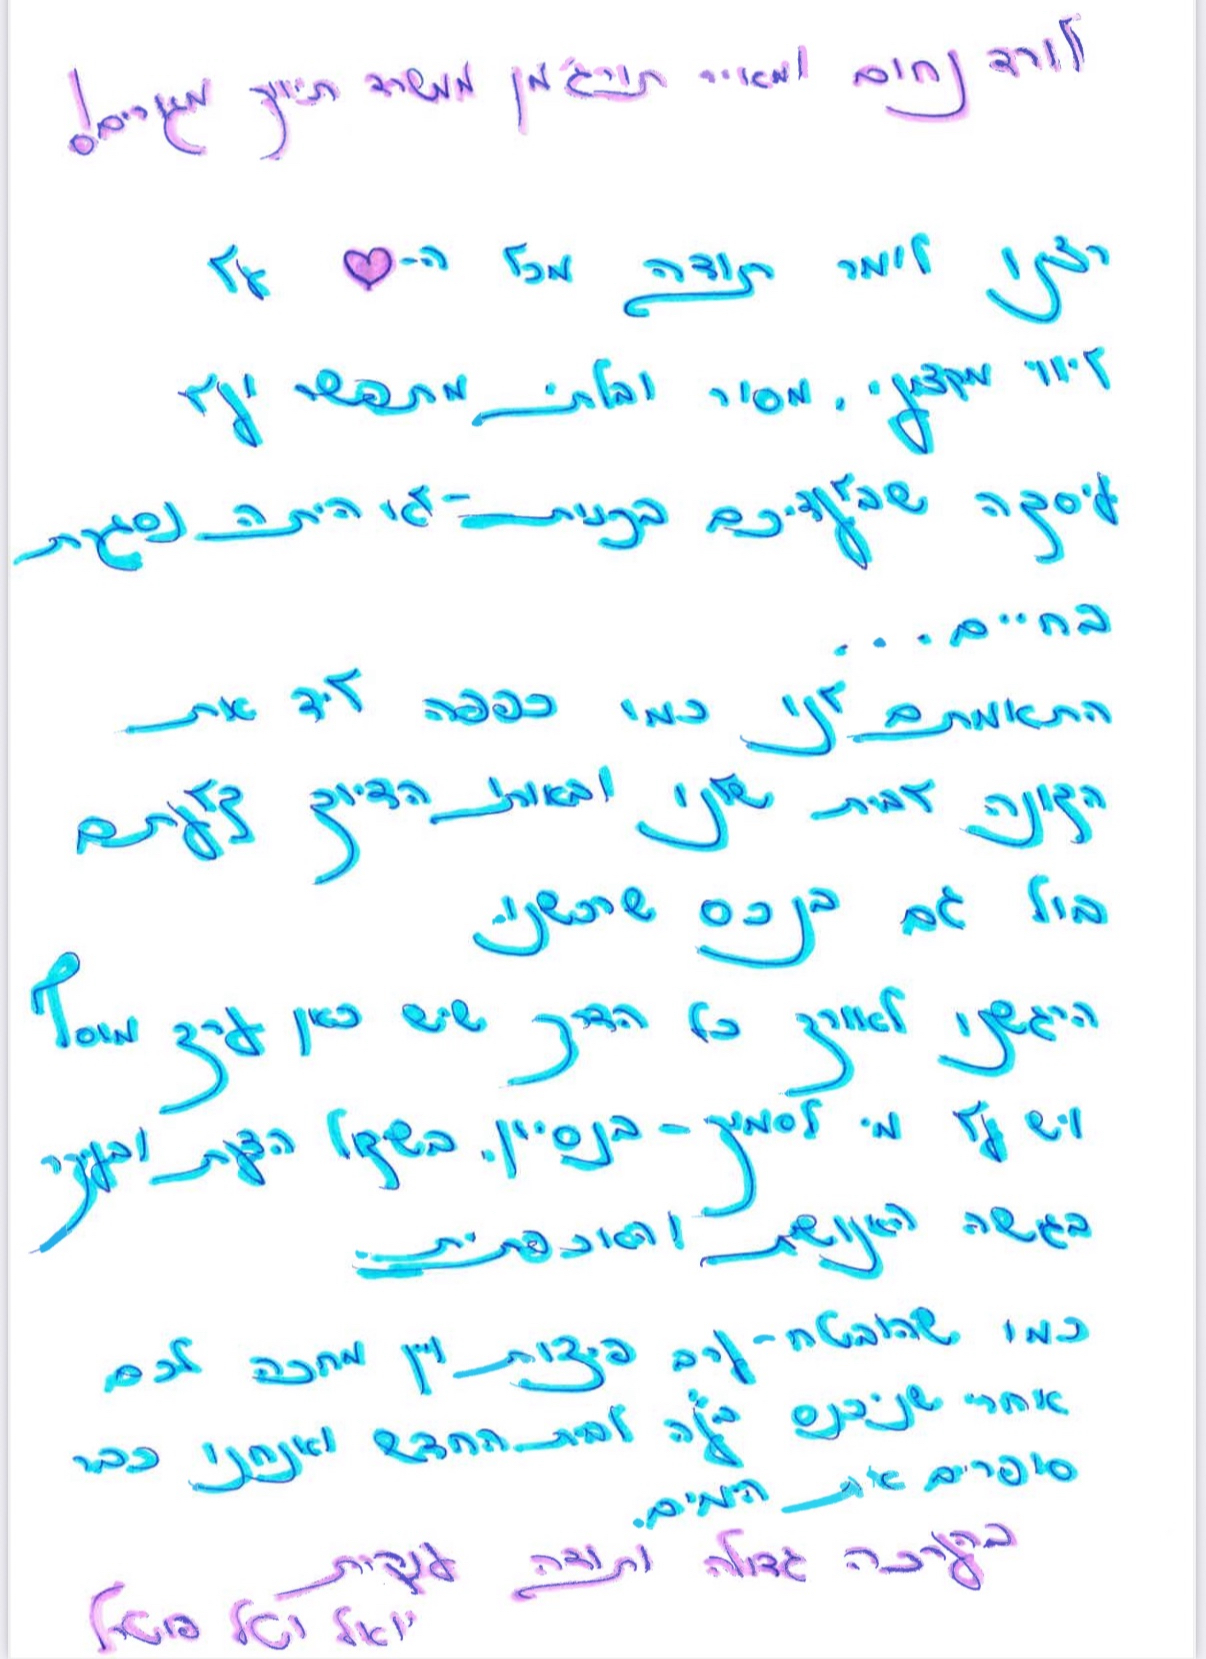 לורד נחום ומאיר תורג'מן ממשרד תיווך מגורים!
רצינו לומר תודה מכל ה-♥ על
ליווי מקצועי, מסור ובלתי מתפשר ועל
עיסקה שבלעדיכם בכנות - לא היתה נסגרת
בחיים...
התאמתם לנו כמו כפפה ליד את
הקונה לבית שלנו ובאותו הדיוק קלעתם
בול גם בנכס שרכשנו.
הרגשנו לאורך כל הדרך שיש כאן ערך מוסף
ויש על מי לסמוך - בנסיון, בשיקול הדעת ובעיקר
בגישה האנושית והאכפתית.
כמו שהובטח - ערב פיצות ויין מחכה לכם
אחרי שניכנס בע"ה לבית החדש ואנחנו כבר
סופרים את הימים.
בהערכה גדולה ותודה ענקית
יואל וטל